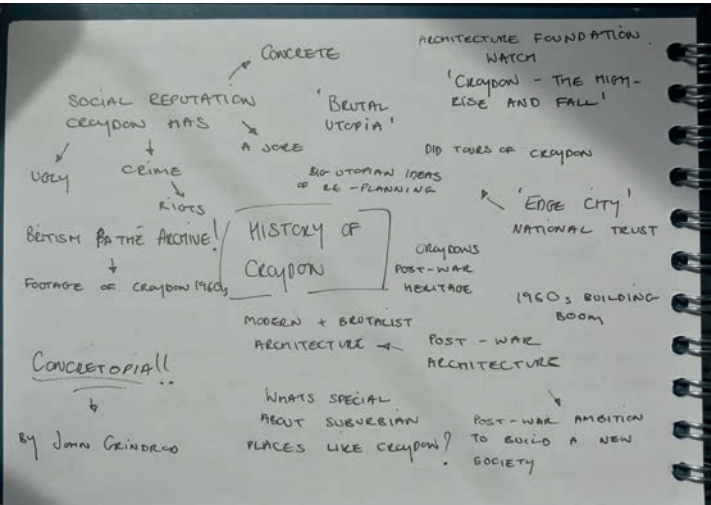 CONCRETE
ARCHITECTURE FOUNDATION
WATCH
'CROYDON - THE HIGH-
RISE AND FALL'
SOCIAL REPUTATION
CROYDON HAS
'BRUTAL
UTOPIA'
UGLY
CRIME
A JOKE
RIOTS
BIG UTOPIAN IDEAS
OF RE-PLANNING
DID TOURS OF CROYDON
'EDGE CITY'
NATIONAL TRUST
BRITISH PATHÉ ARCHIVE!
FOOTAGE OF CROYDON 1960s
HISTORY OF
CROYDON
CROYDONS
POST-WAR
HERITAGE
1960s BUILDING
BOOM
MODERN + BRUTALIST
ARCHITECTURE
POST-WAR
ARCHITECTURE
CONCRETOPIA!!
BY JOHN GRINDROD
WHATS SPECIAL
ABOUT SUBURBIAN
PLACES LIKE CROYDON?
POST-WAR AMBITION
TO BUILD A NEW
SOCIETY